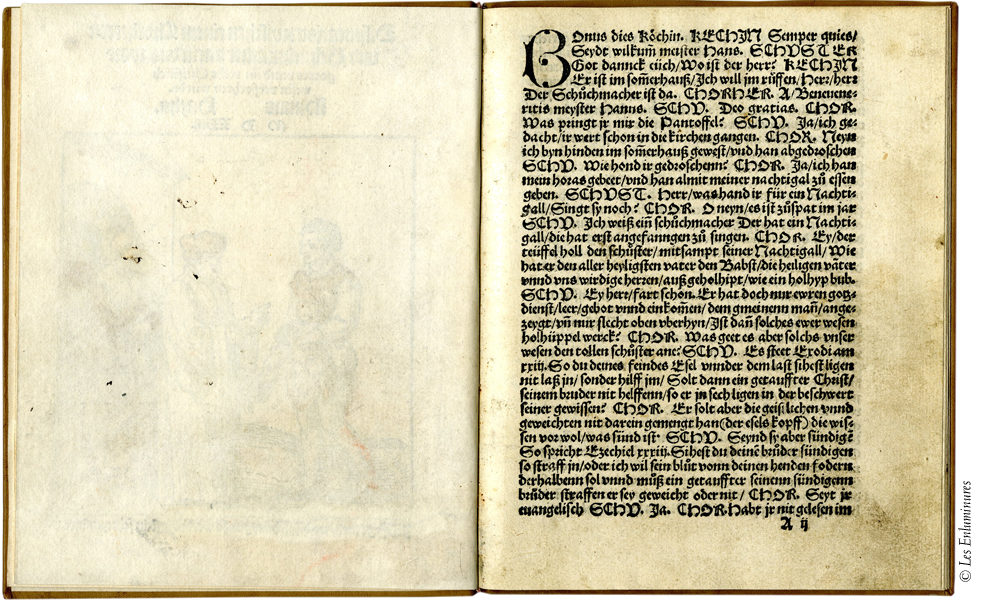 BOnus dies Köchin. KECHIN Semper quies/
Seydt wilkum̃ meister Hans. SCHVSTER
Got dannck eüch/Wo ist der herr? KECHIN
Er ist im som̃erhauß/Ich will jm rüffen/Herr/herr
Der Schůchmacher ist da. CHORHER. A/Beneuene-
ritis meyster Hanns. SCHV. Deo gratias. CHOR.
Was pringt jr mir die Pantoffel? SCHV. Ja/ich ge-
dacht/ir wert schon in die kirchen gangen. CHOR. Neyn
ich byn hinden im som̃erhauß gewest/vnd han abgedroschen
SCHV. Wie hond ir gedroschenn? CHOR. Ja/ich han
mein horas gebeet/vnd han almit meiner nachtigal zů essen
geben. SCHVST. Herr/was hand ir für ein Nachti-
gall/Singt sy noch? CHOR. O neyn/es ist zůspat im jar
SCHV. Ich weiß ein schůchmacher Der hat ein Nachti-
gall/die hat erst angefanngen zů singen. CHOR. Ey/der
teüffel holl den schůster/mitsampt seiner Nachtigall/Wie
hat er den aller heyligsten vater den Babst/die heiligen våter
vnnd vns wirdige herren/außgeholhipt/wie ein holhyp bub.
SCHV. Ey herr/fart schon. Er hat doch nur ewren gotz-
dienst/leer/gebot vnnd einkom̃en/dem gmeinenn man̄/ange-
zeygt/vn̄ mir slecht oben vberhyn/Ist dan̄ solches ewer wesen
holhüppel werck? CHOR. Was geet es aber solchs vnser
wesen den tollen schůster ane? SCHV. Es steet Exodi am
xxiij. So du deines feindes Esel vnnder dem last sihest ligen
nit laß jn/sonder hilff jm/Solt dann ein getauffter Christ/
seinem bruder nit helffenn/so er jn sech ligen in der beschwert
seiner gewissen? CHOR. Er solt aber die geistlichen vnnd
geweichten nit darein gemengt han(der esels kopff) die wis-
sen vor wol/was sünd ist. SCHV. Seynd sy aber sündigē
So spricht Ezechiel xxxiij. Sihest du deinē brůder sündigen
so straff jn/oder ich wil sein blůt vonn deinen henden fodern
derhalbenn sol vnnd můß ein getauffter seinenn sündigenn
brůder straffen er sey geweicht oder nit/CHOR. Seyt jr
euangelisch SCHV. Ja. CHOR. Habt jr nit gelesen im
A ij
© Les Enluminures